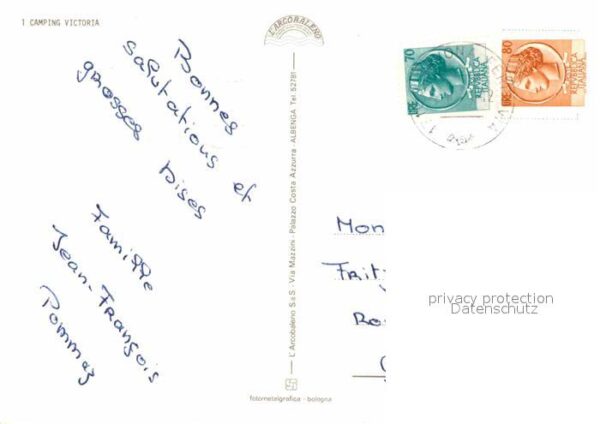 1 CAMPING VICTORIA
L'ARCOBALENO
Bonnes
salutations et
grosses bises
Famille
Jean-François
Pommaz
L'Arcobaleno S.a.S. - Via Mazzini - Palazzo Costa Azzurra - ALBENGA Tel. 52781
fotometalgrafica - bologna
70
REPVBBLICA
ITALIANA
LIRE
80
REPVBBLICA
ITALIANA
LIRE
Mon
Frit
Ro
privacy protection
Datenschutz